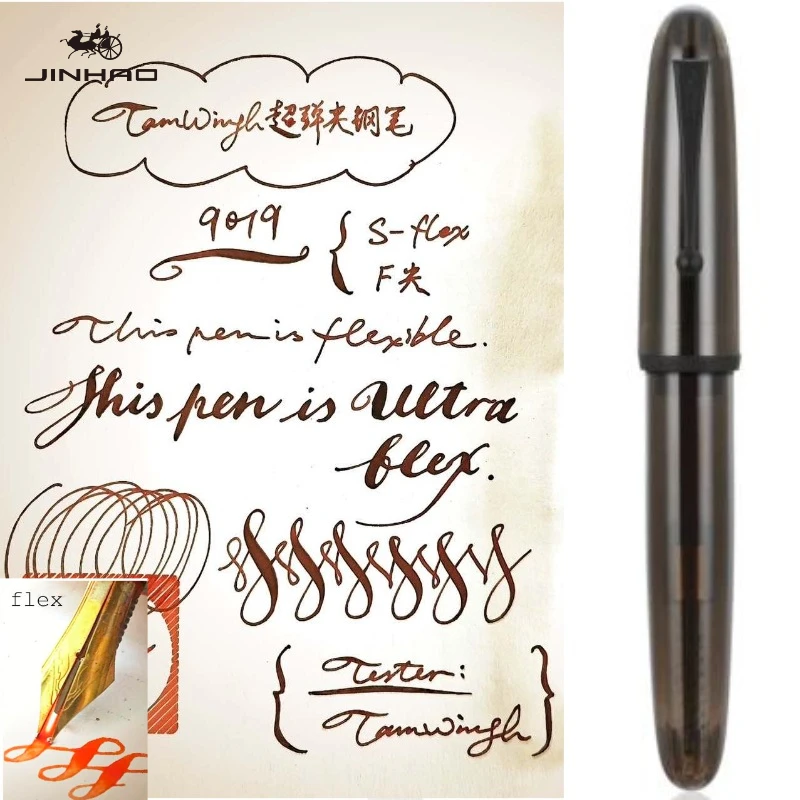 JINHAO
TamWingh超弹尖钢笔
9019
S-flex
F尖
This pen is flexible.
This pen is Ultra
flex.
flex
Tester:
TamWingh